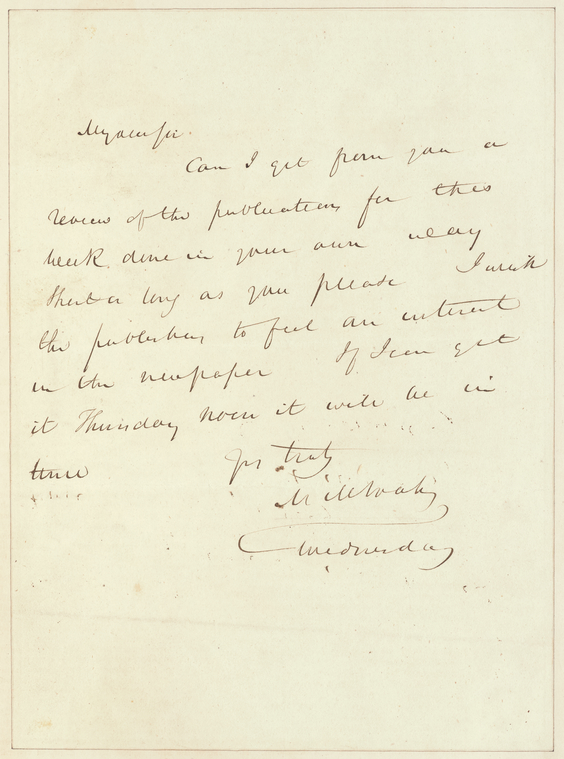 My dear Sir.
Can I get from you a
review of the publications for this
week done in your own way
Short or long as you please I wish
the publishers to feel an interest
in the newspaper If I can get
it Thursday noon it will be in
time
yrs truly
M M Noah
Wednesday